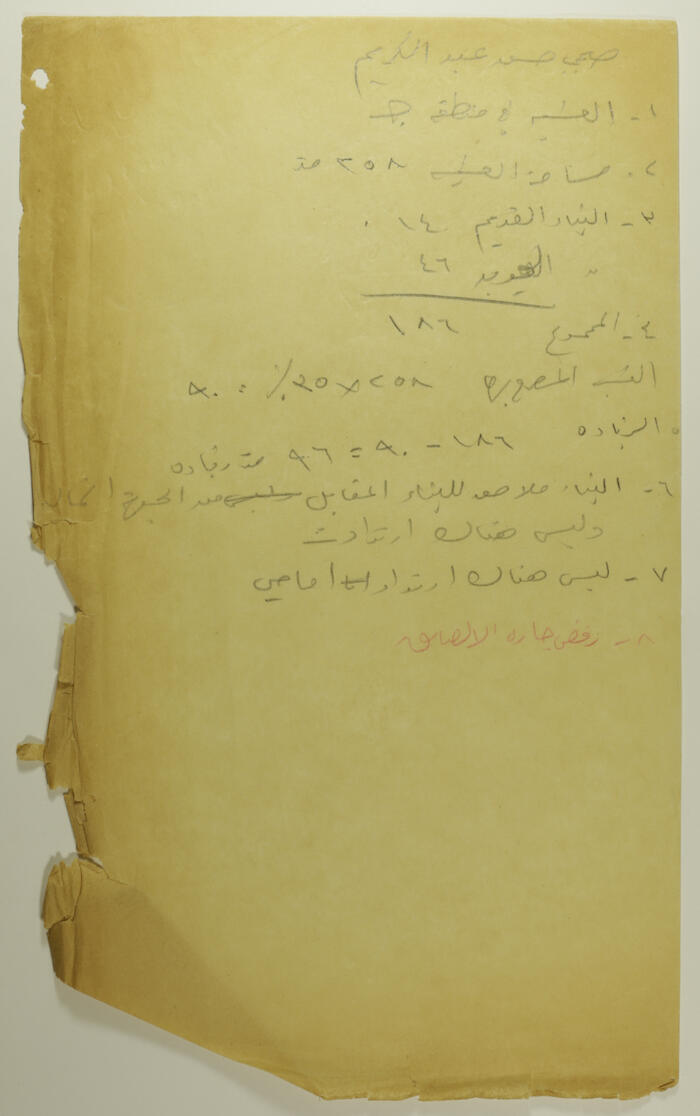 صبحي حسن عبد الكريم
١- القسيمه في منطقة جـ
٢- مساحة القسيمه ٢٥٨ متر
٣- البناء القديم ١٤٠
" الجديد ٤٦
٤- المجموع ١٨٦
النسبه المصرح بها ٢٥٨ × ٣٥٪ = ٩٠
٥ الزياده ١٨٦ - ٩٠ = ٩٦ متر زياده
٦- البناء ملاصق للبناء المقابل من الجهة
وليس هناك ارتدادت
٧- ليس هناك ارتداد امامي
٨- رفض جاره الالصاق